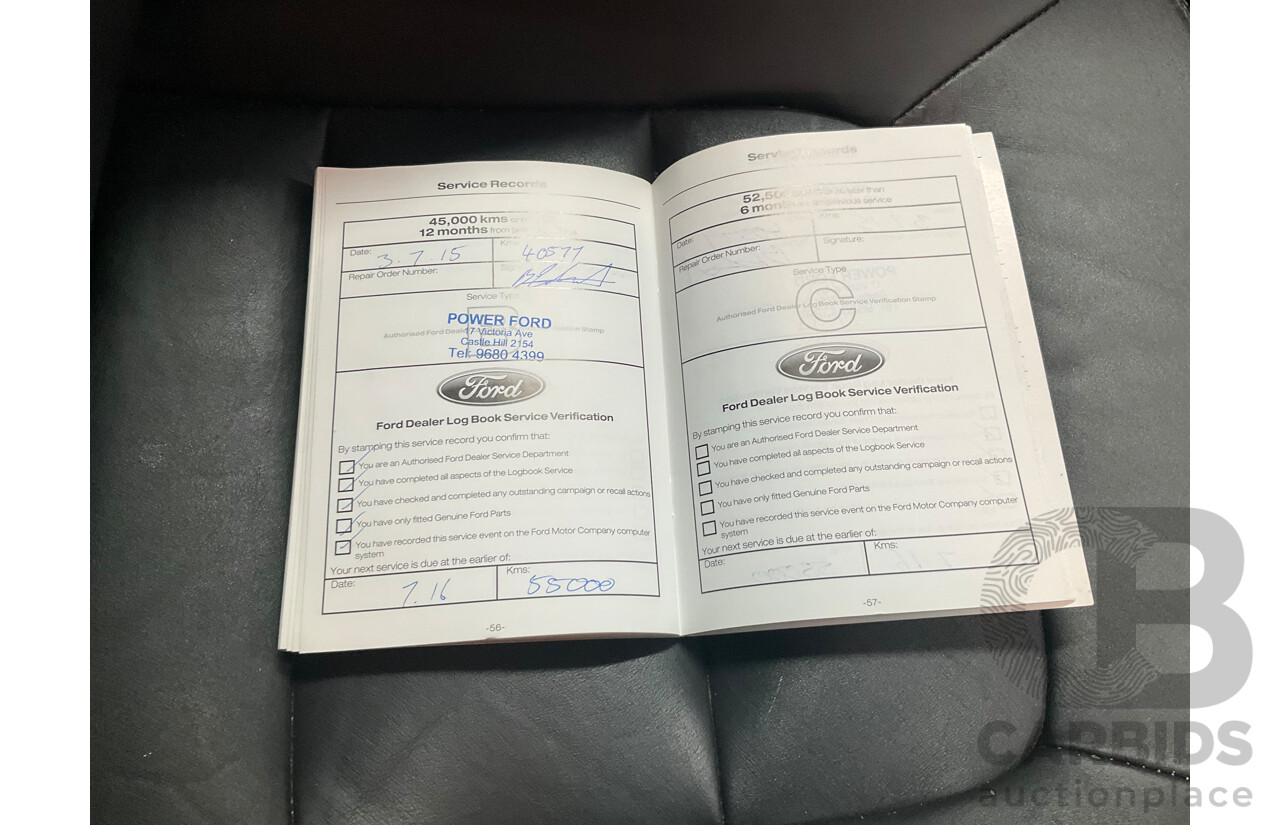 Service Records
45,000 kms
12 months from
Date: 3.7.15 Kms 40577
Repair Order Number:
Service Type
Authorised Ford Dealer Stamp
POWER FORD
17 Victoria Ave
Castle Hill 2154
Tel: 9680 4399
Ford
Ford Dealer Log Book Service Verification
By stamping this service record you confirm that:
You are an Authorised Ford Dealer Service Department
You have completed all aspects of the Logbook Service
You have checked and completed any outstanding campaign or recall actions
You have only fitted Genuine Ford Parts
You have recorded this service event on the Ford Motor Company computer
system
Your next service is due at the earlier of:
Date: 7.16 Kms: 55000
-56-
Service Records
than
6 months previous service
Date: Kms:
Repair Order Number: Signature:
Service Type
C
Authorised Ford Dealer Log Book Service Verification Stamp
Ford
Ford Dealer Log Book Service Verification
By stamping this service record you confirm that:
You are an Authorised Ford Dealer Service Department
You have completed all aspects of the Logbook Service
You have checked and completed any outstanding campaign or recall actions
You have only fitted Genuine Ford Parts
You have recorded this service event on the Ford Motor Company computer
system
Your next service is due at the earlier of:
Date: Kms:
-57-
B
CARBIDS
auctionplace